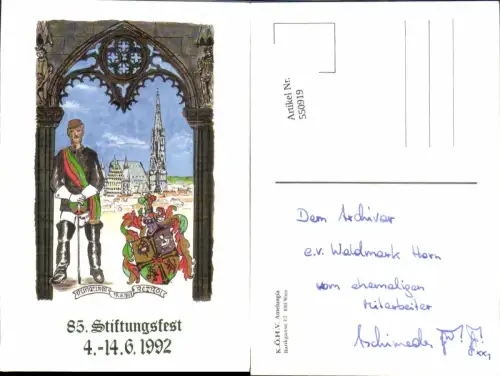 85. Stiftungsfest
4.-14.6. 1992
Artikel Nr.
550919
K.Ö.H.V. Amelungia
Dem Archivar
e.v. Waldmark Horn
vom ehemaligen
Mitarbeiter
Archimedes